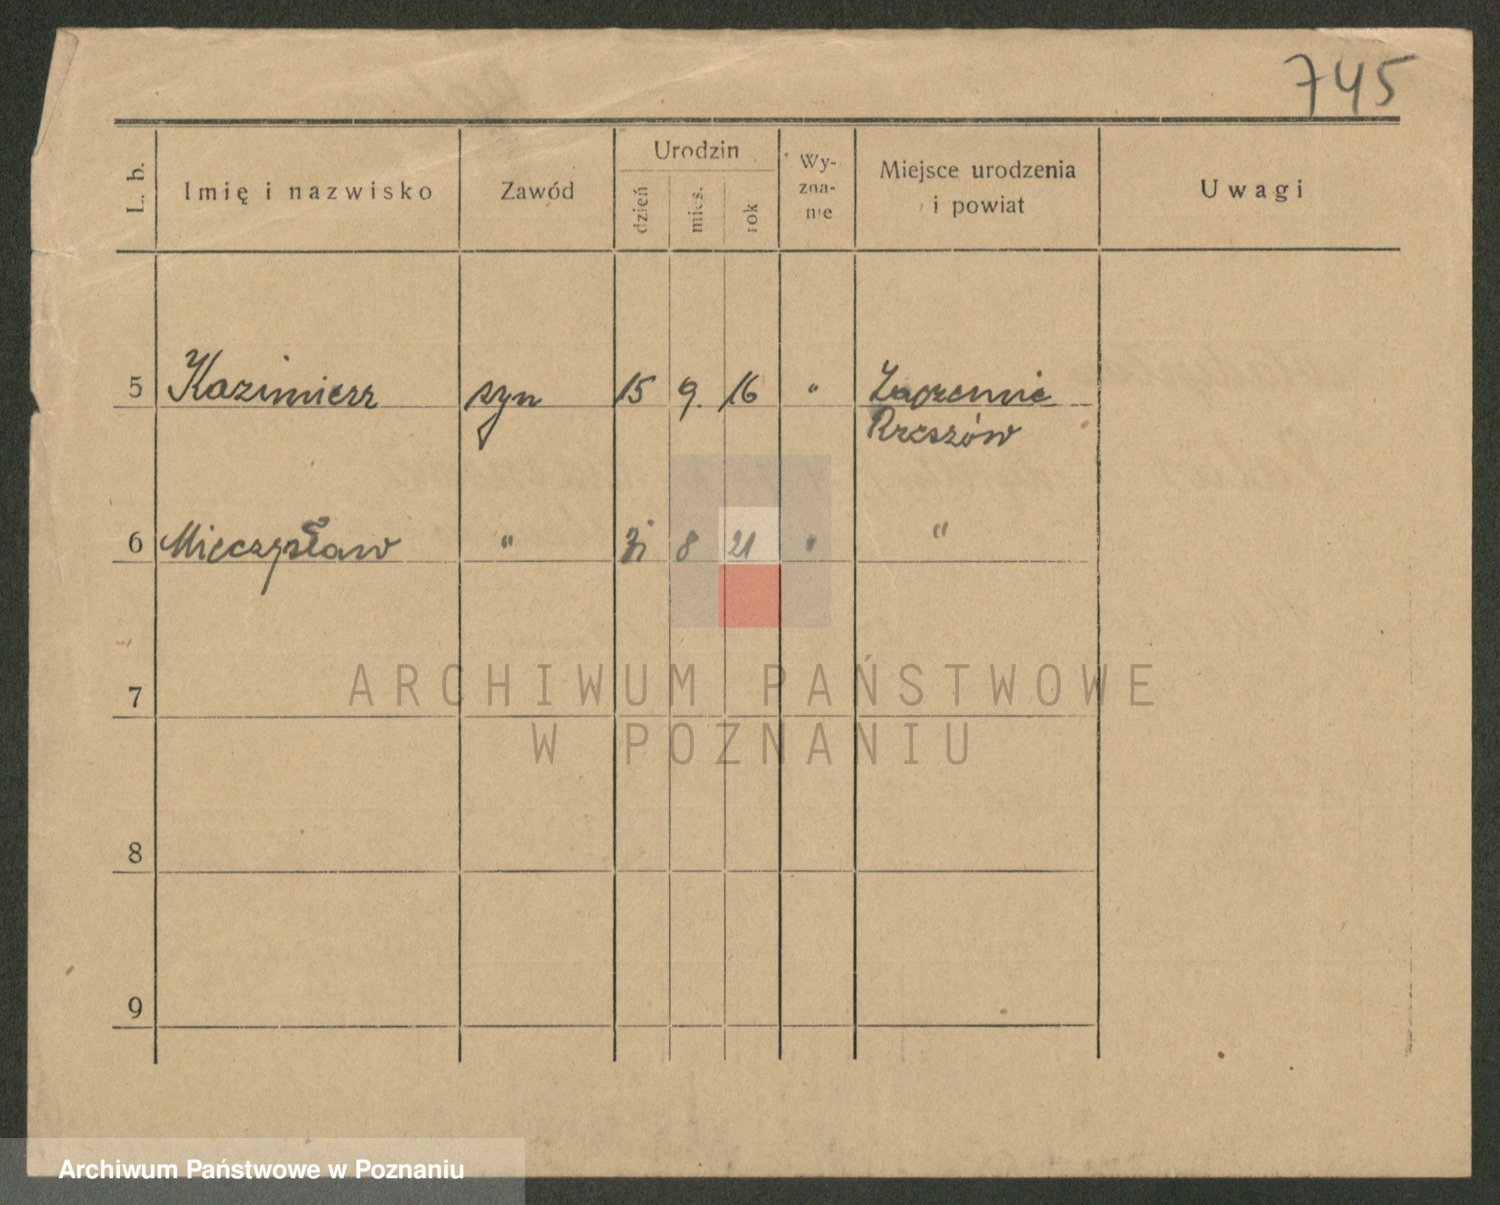 745
L. b.
Imię i nazwisko
Zawód
Urodzin
dzień
mies.
rok
Wy-
zna-
nie
Miejsce urodzenia
i powiat
Uwagi
5 Kazimierz syn 15 9. 16 "
Rzeszów
6 Mieczysław " 8 21 " "
7
8
9
ARCHIWUM PAŃSTWOWE
W POZNANIU
Archiwum Państwowe w Poznaniu